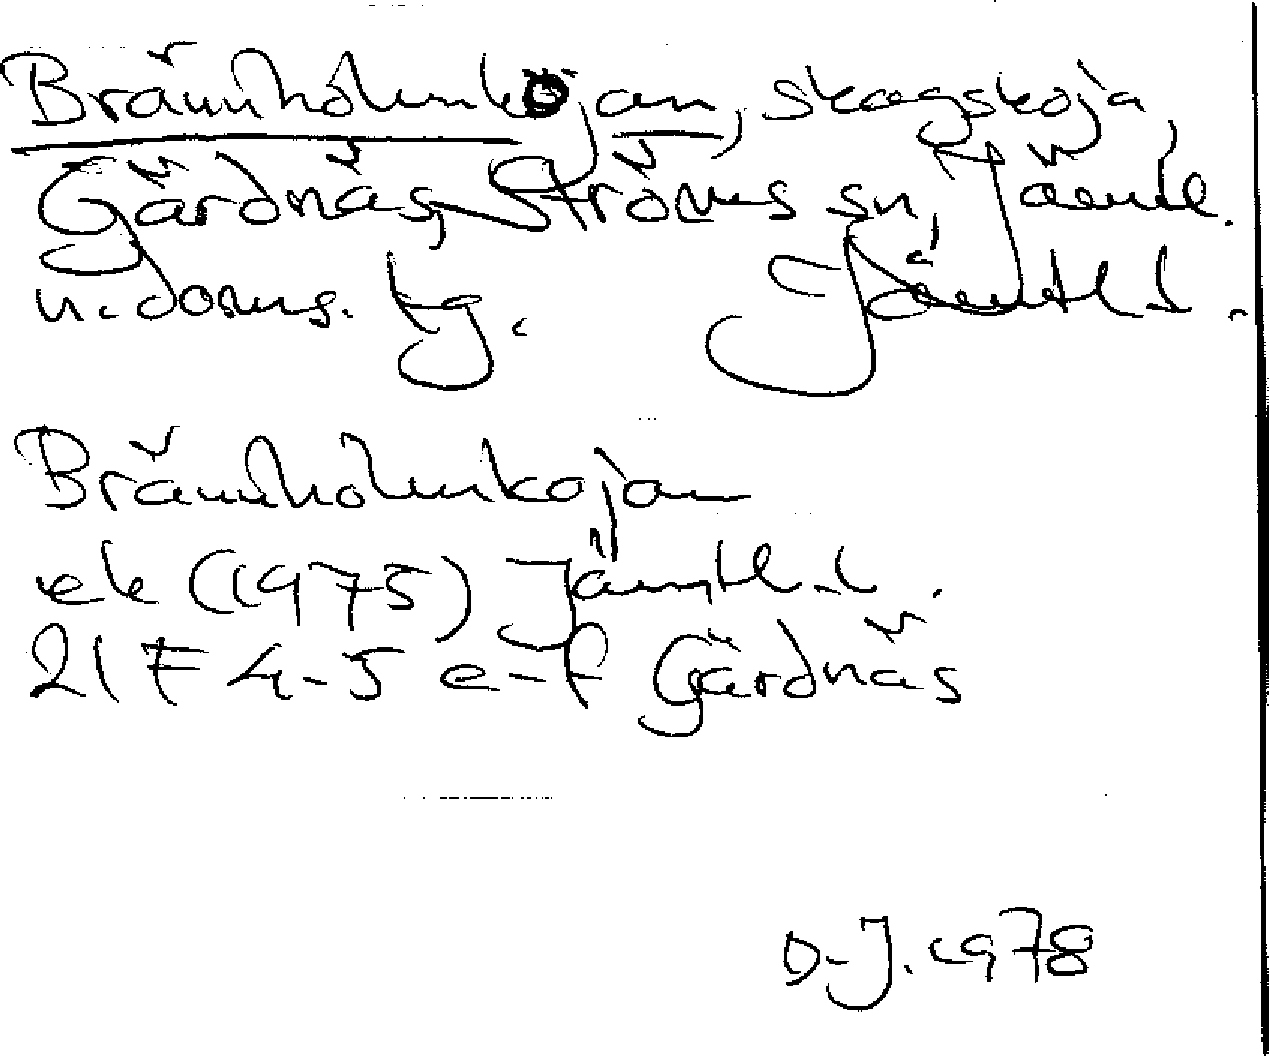 Brännholmkojan, skogskoja
Gärdnäs, Ströms sn, Jämtl.
n. doms. tg. Jämtl. l.
Brännholmkojan
ek (1975) Jämtl. l.
21 F 4-5 e-f Gärdnäs
D-J. 1978